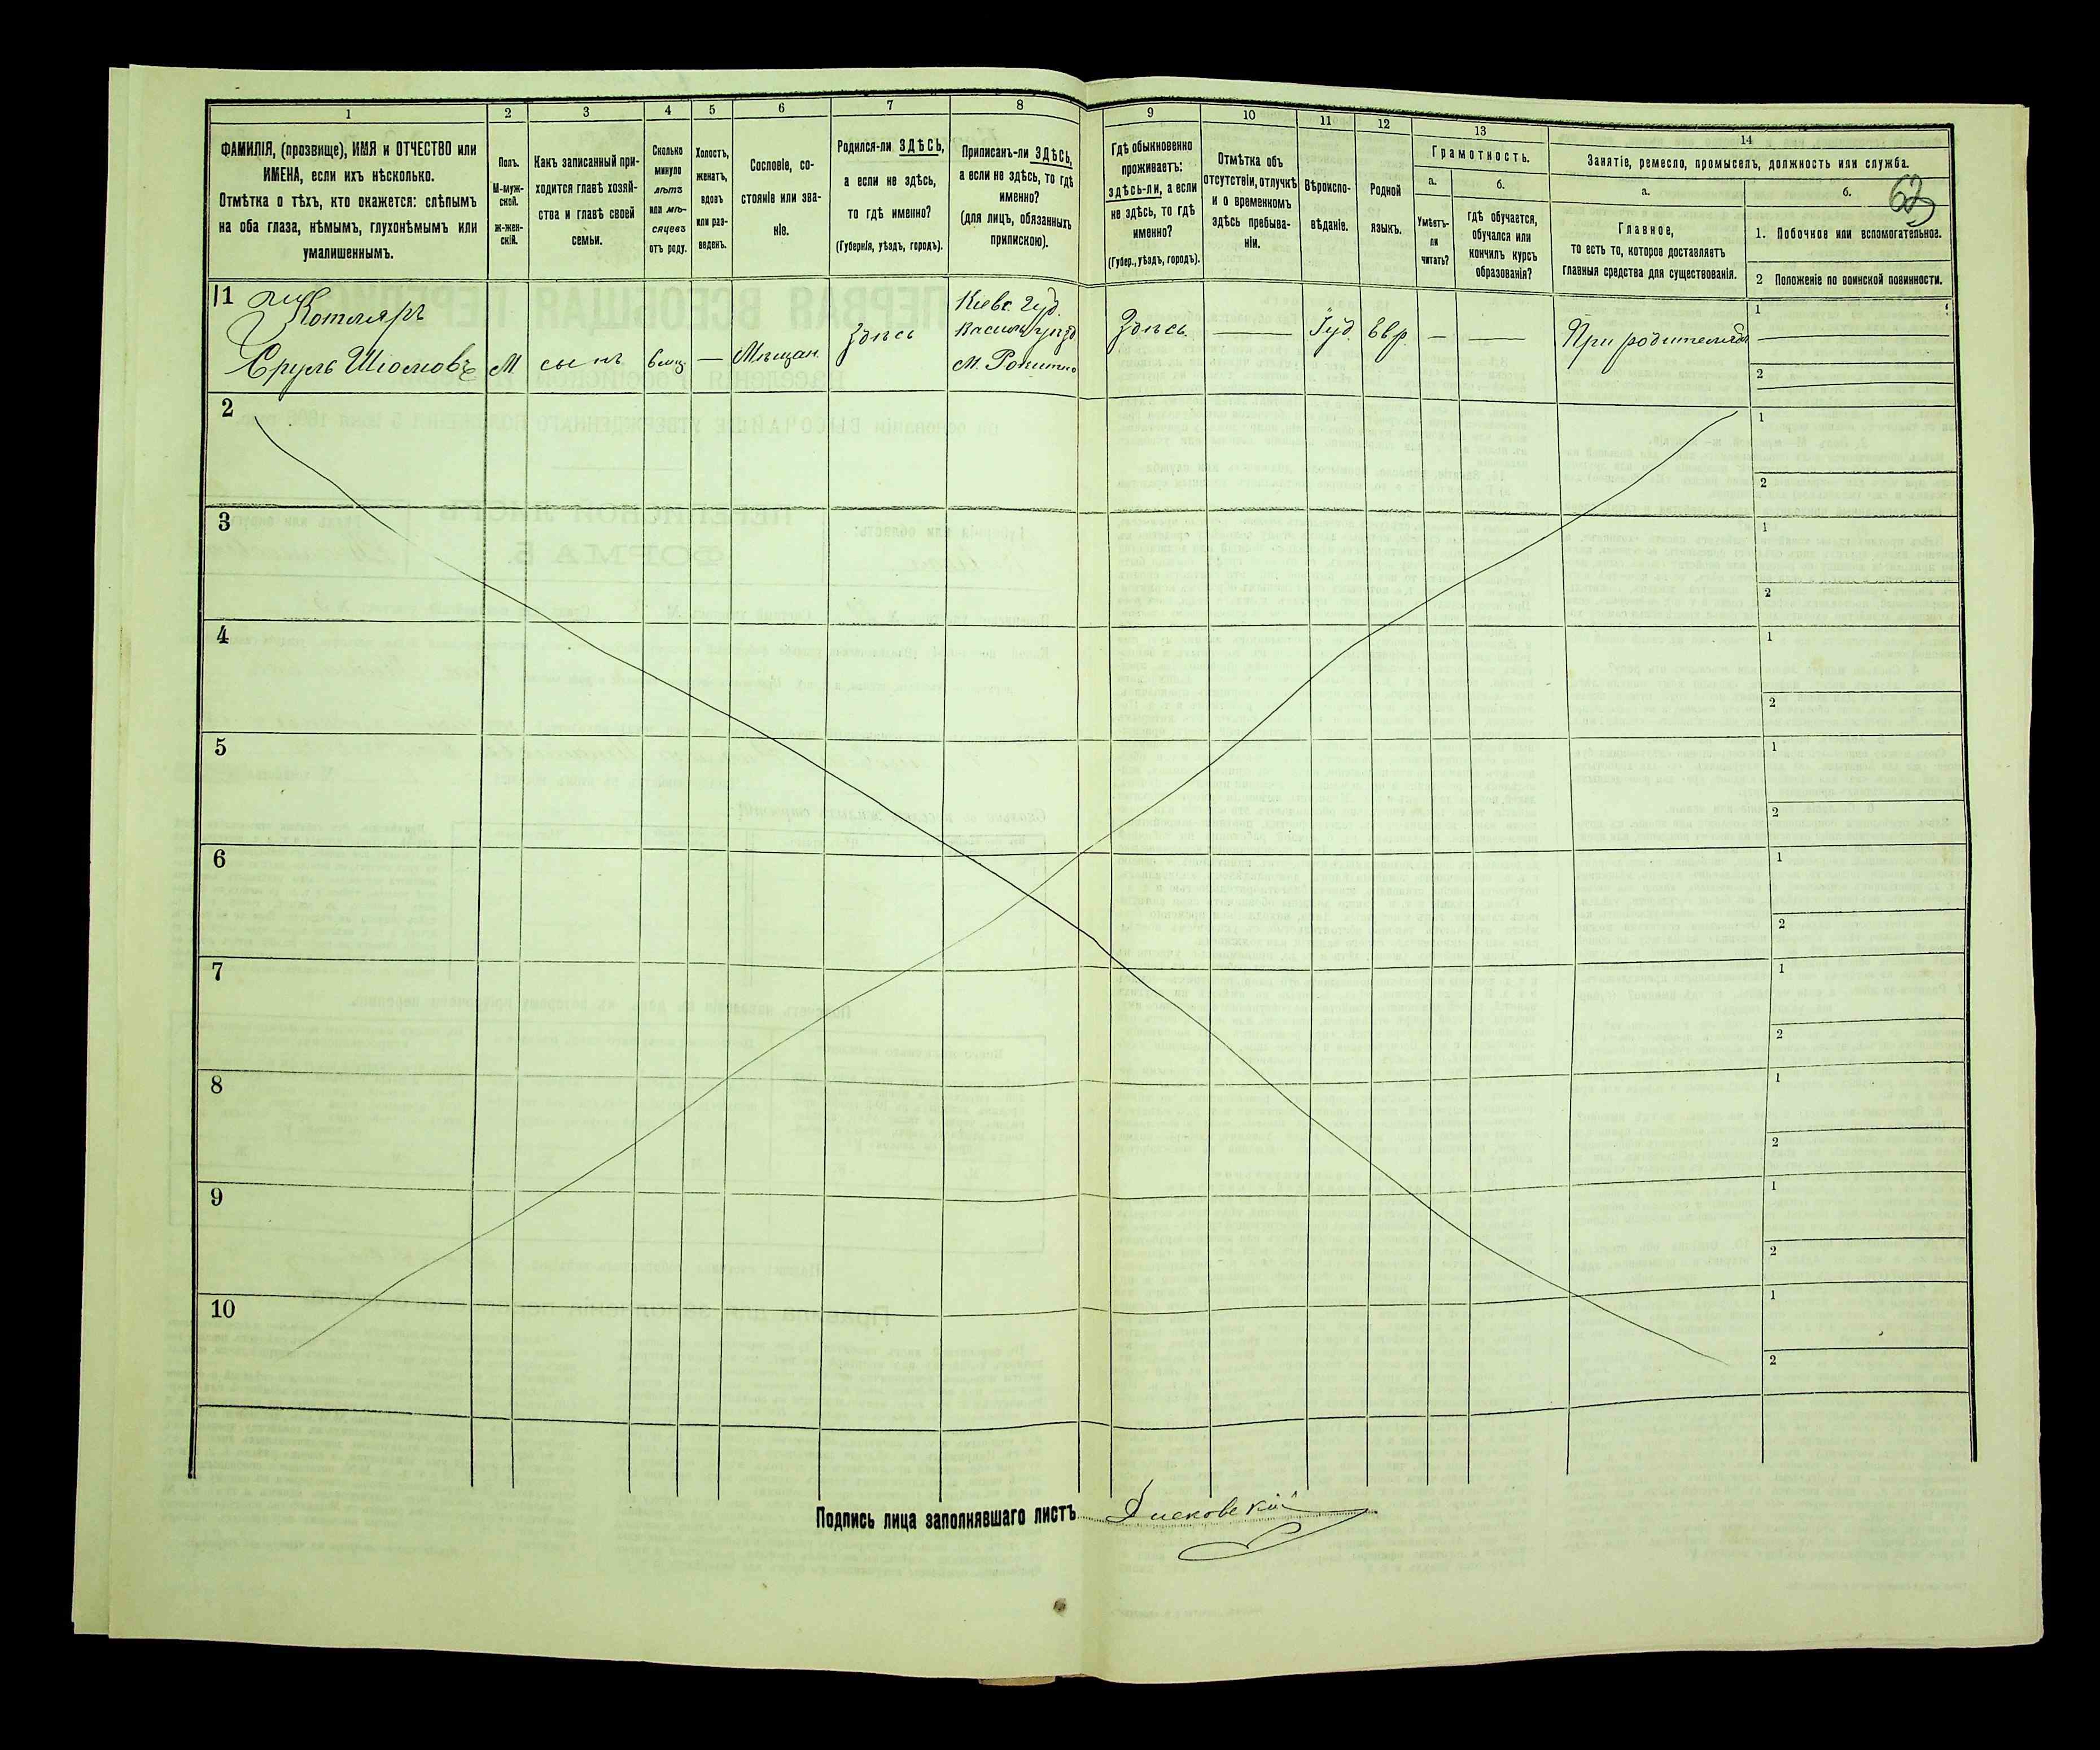 1
ФАМИЛІЯ, (прозвище), ИМЯ и ОТЧЕСТВО или
ИМЕНА, если ихъ нѣсколько.
Отмѣтка о тѣхъ, кто окажется: слѣпымъ
на оба глаза, нѣмымъ, глухонѣмымъ или
умалишеннымъ.
2
Полъ.
М-муж-
ской.
Ж-жен-
скій.
3
Какъ записанный при-
ходится главѣ хозяй-
ства и главѣ своей
семьи.
4
Сколько
минуло
лѣтъ
или мѣ-
сяцевъ
отъ роду.
5
Холостъ,
женатъ,
вдовъ
или раз-
веденъ.
6
Сословіе, со-
стояніе или зва-
ніе.
7
Родился-ли ЗДѢСЬ,
а если не здѣсь,
то гдѣ именно?
(Губернія, уѣздъ, городъ).
8
Приписанъ-ли ЗДѢСЬ,
а если не здѣсь, то гдѣ
именно?
(для лицъ, обязанныхъ
припискою).
9
Гдѣ обыкновенно
проживаетъ:
здѣсь-ли, а если
не здѣсь, то гдѣ
именно?
(Губер., уѣздъ, городъ).
10
Отмѣтка объ
отсутствіи, отлучкѣ
и о временномъ
здѣсь пребыва-
ніи.
11
Вѣроиспо-
вѣданіе.
12
Родной
языкъ.
13
Грамотность.
а.
Умѣетъ-
ли
читать?
б.
гдѣ обучается,
обучался или
кончилъ курсъ
образованія?
14
Занятіе, ремесло, промыселъ, должность или служба.
а.
Главное,
то есть то, которое доставляетъ
главныя средства для существованія.
б.
1. Побочное или вспомогательное.
2 Положеніе по воинской повинности.
11
Котляръ
Сруль Шіомовъ
М
сынъ
—
Мѣщан.
Здѣсь
Кіевс. Губ.
М. Рокитно
Здѣсь
—
Іуд.
Евр.
—
—
При родителяхъ
1
2
2
1
2
3
1
2
4
1
2
5
1
2
6
1
2
7
1
2
8
1
2
9
1
2
10
1
2
Подпись лица заполнявшаго листъ